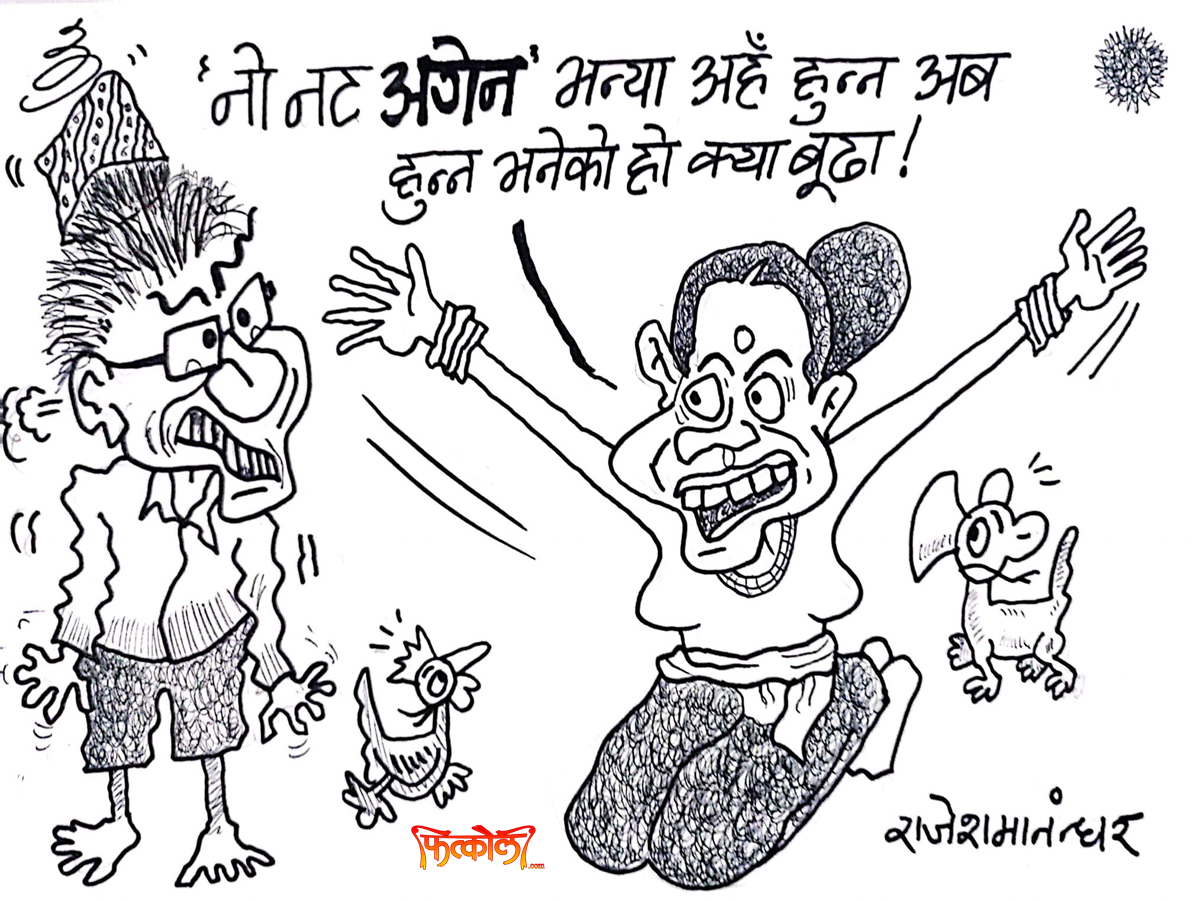 'नो नट अगेन' भन्या अहँ हुन्न अब
हुन्न भनेको हो क्या बूढा!
फित्कौली
.com
राजेशमानन्धर